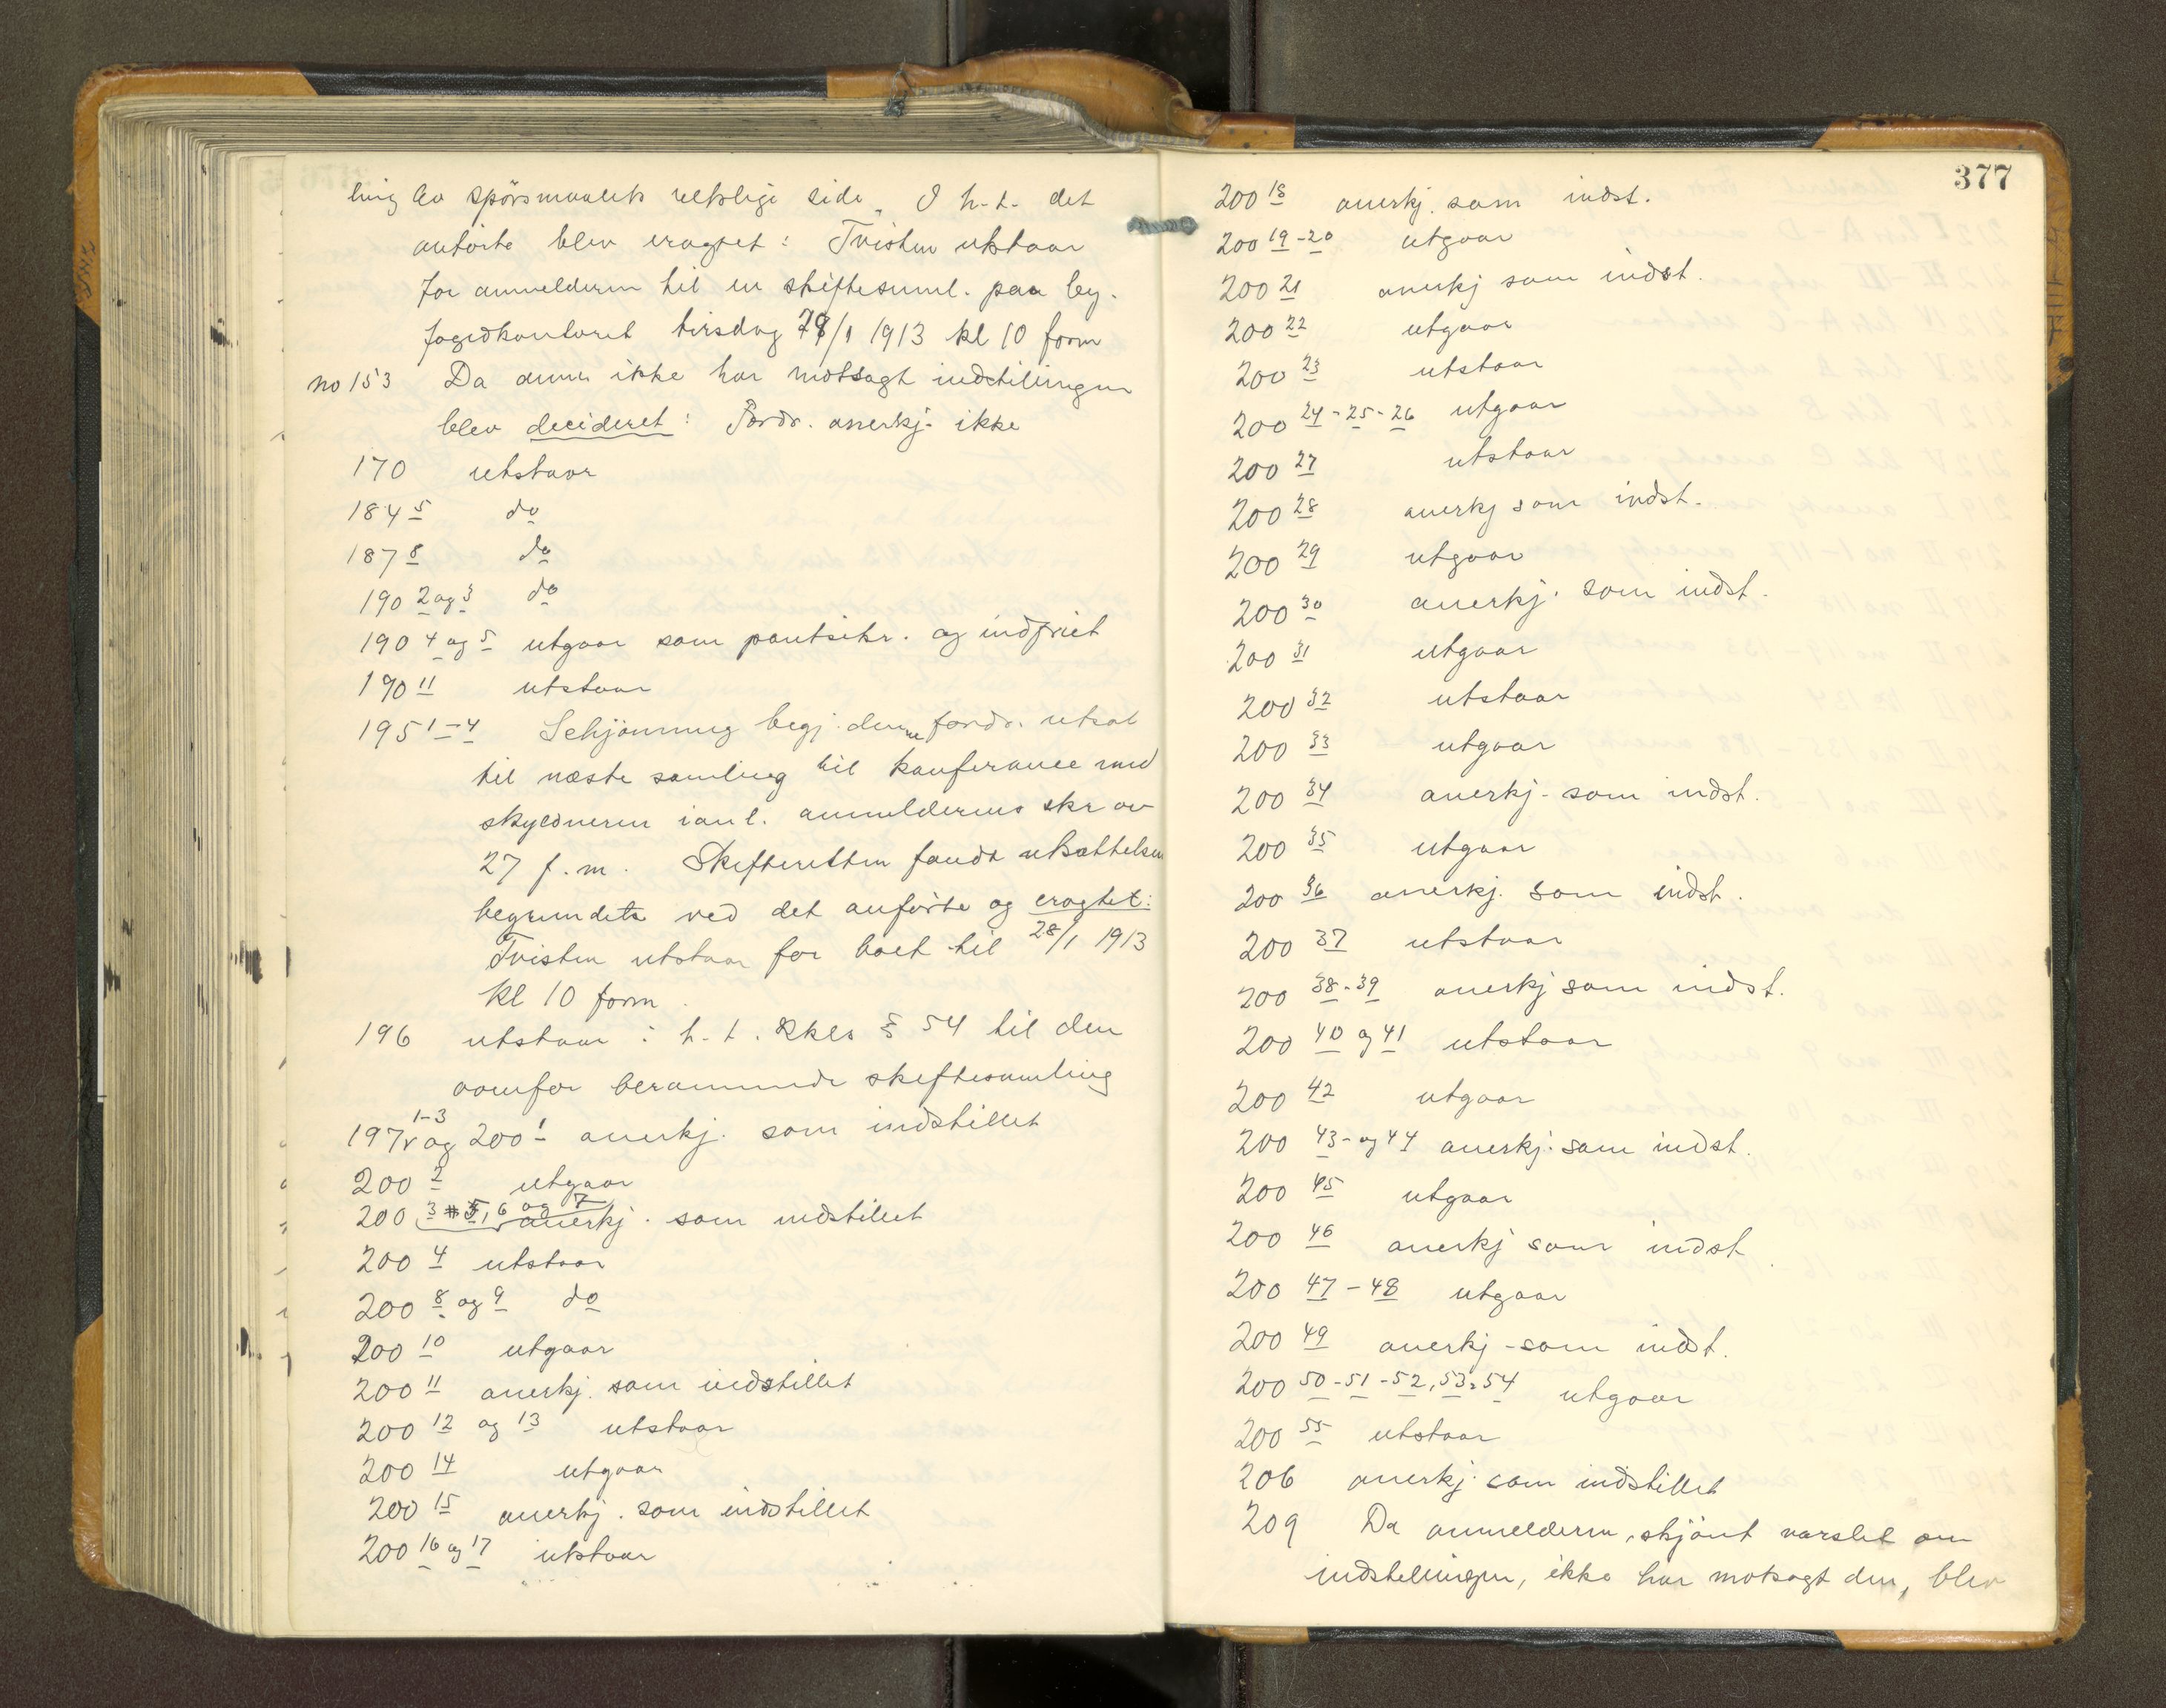 ling av spörsmaalets retslige side. I h. t. det
anförte blev eragtet: Tvisten utstaar
for anmelderen til en skiftesaml. paa by-
fogedkontoret tirsdag 28/1 1913 kl 10 form
no 153 Da anm. ikke har motsagt indstillingen
blev decideret: Fordr. anerkj. ikke
170 utstaar
184 5 do
187 8 do
190 2 og 3 do
190 4 og 5 utgaar som pantsikr. og indfriet
190 11 utstaar
195 1-4 Schjönning begj. denne fordr. utsat
til næste samling til konferance med
skyldneren i anl. anmelderens skr av
27 f. m. Skifteretten fandt utsættelsen
begrundet ved det anförte og eragtet:
Tvisten utstaar for boet til 28/1 1913
kl 10 form.
196 utstaar i h. t. Kkls § 54 til den
ovenfor berammede skiftesamling
197 1-3 og 200 1 anerkj. som indstillet
200 2 utgaar
200 3, 5, 6 og 7 anerkj. som indstillet
200 4 utstaar
200 8 og 9 do
200 10 utgaar
200 11 anerkj. som indstillet
200 12 og 13 utstaar
200 14 utgaar
200 15 anerkj. som indstillet
200 16 og 17 utstaar
377
200 18 anerkj. som indst.
200 19-20 utgaar
200 21 anerkj som indst.
200 22 utgaar
200 23 utstaar
200 24-25-26 utgaar
200 27 utstaar
200 28 anerkj som indst.
200 29 utgaar
200 30 anerkj. som indst.
200 31 utgaar
200 32 utstaar
200 33 utgaar
200 34 anerkj. som indst.
200 35 utgaar
200 36 anerkj. som indst.
200 37 utstaar
200 38-39 anerkj som indst.
200 40 og 41 utstaar
200 42 utgaar
200 43- og 44 anerkj. som indst.
200 45 utgaar
200 46 anerkj som indst.
200 47-48 utgaar
200 49 anerkj - som indst.
200 50-51-52, 53, 54 utgaar
200 55 utstaar
206 anerkj. som indstillet
209 Da anmelderen, skjönt varslet om
indstillingen, ikke har motsagt den, blev